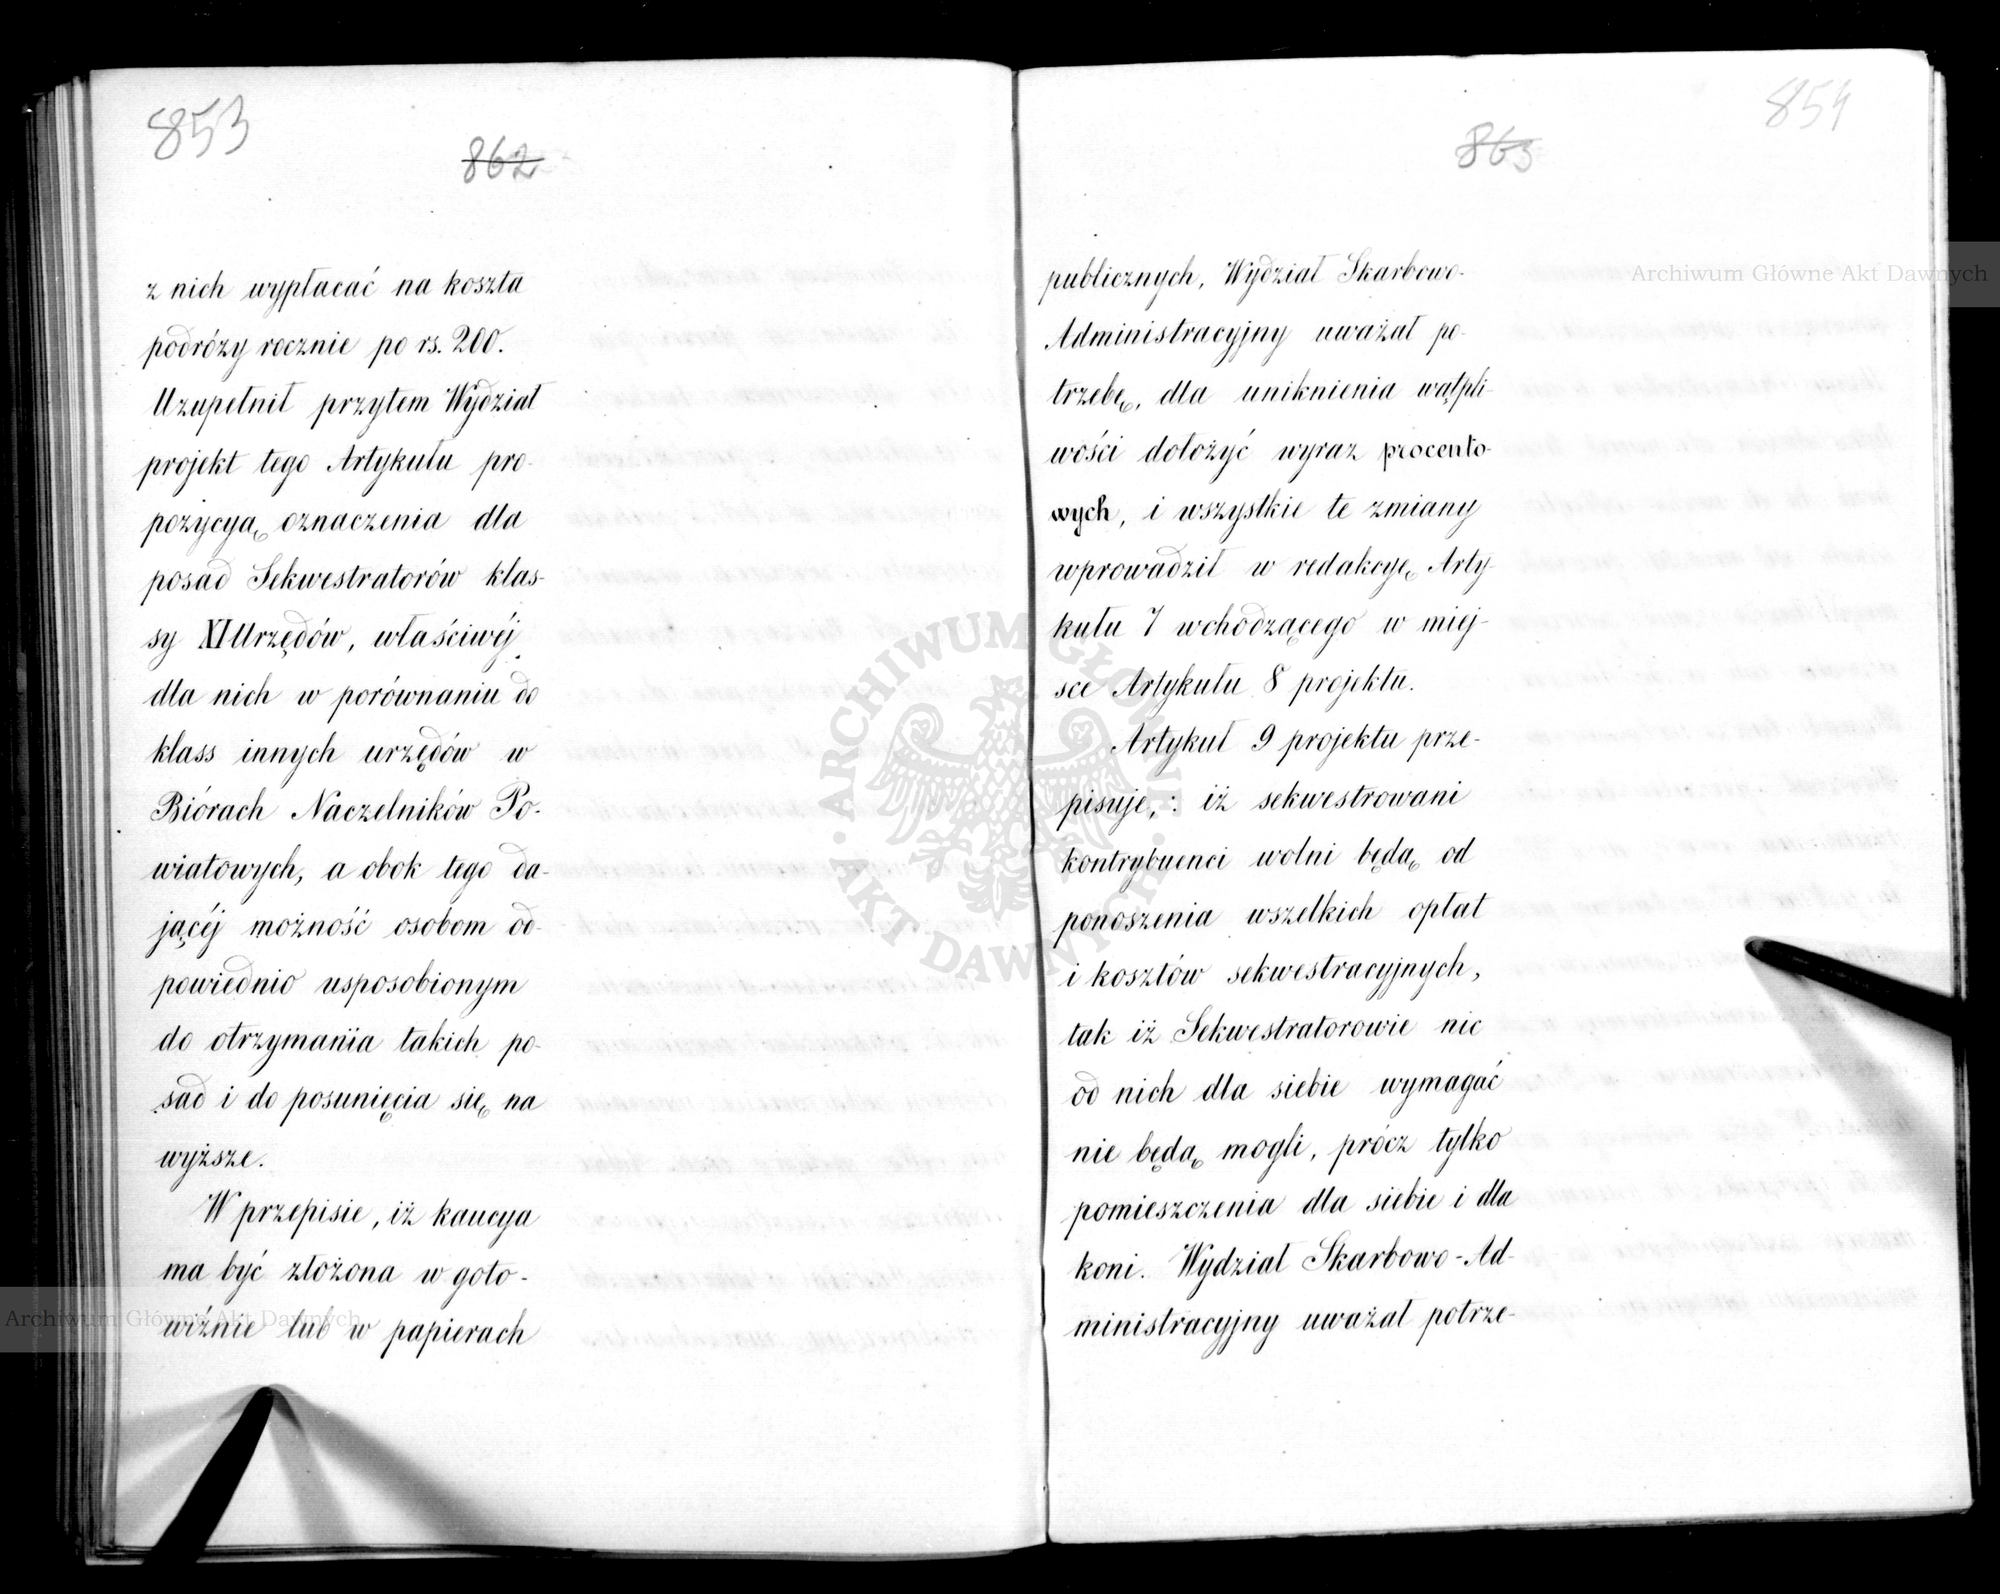 853
862
z nich wypłacać na koszta
podróży rocznie po rs. 200.
Uzupełnił przytem Wydział
projekt tego Artykułu pro-
pozycyą oznaczenia dla
posad Sekwestratorów klas-
sy XI Urzędów, właściwéj
dla nich w porównaniu do
klass innych urzędów w
Biórach Naczelników Po-
wiatowych, a obok tego da-
jącéj możność osobom od-
powiednio usposobionym
do otrzymania takich po-
sad i do posunięcia się na
wyższe.
W przepisie, iż kaucya
ma być złożona w goto-
wiźnie lub w papierach
854
863
publicznych, Wydział Skarbowo-
Administracyjny uważał po-
trzebę, dla uniknienia wątpli-
wości dołożyć wyraz procento-
wych, i wszystkie te zmiany
wprowadził w redakcyę Arty-
kułu 7 wchodzącego w miej-
sce Artykułu 8 projektu.
Artykuł 9 projektu prze-
pisuje,: iż sekwestrowani
kontrybuenci wolni będą od
ponoszenia wszelkich opłat
i kosztów sekwestracyjnych,
tak iż Sekwestratorowie nic
od nich dla siebie wymagać
nie będą mogli, prócz tylko
pomieszczenia dla siebie i dla
koni. Wydział Skarbowo-Ad-
ministracyjny uważał potrze-
Archiwum Główne Akt Dawnych
Archiwum Główne Akt Dawnych
ARCHIWUM GŁÓWNE AKT DAWNYCH